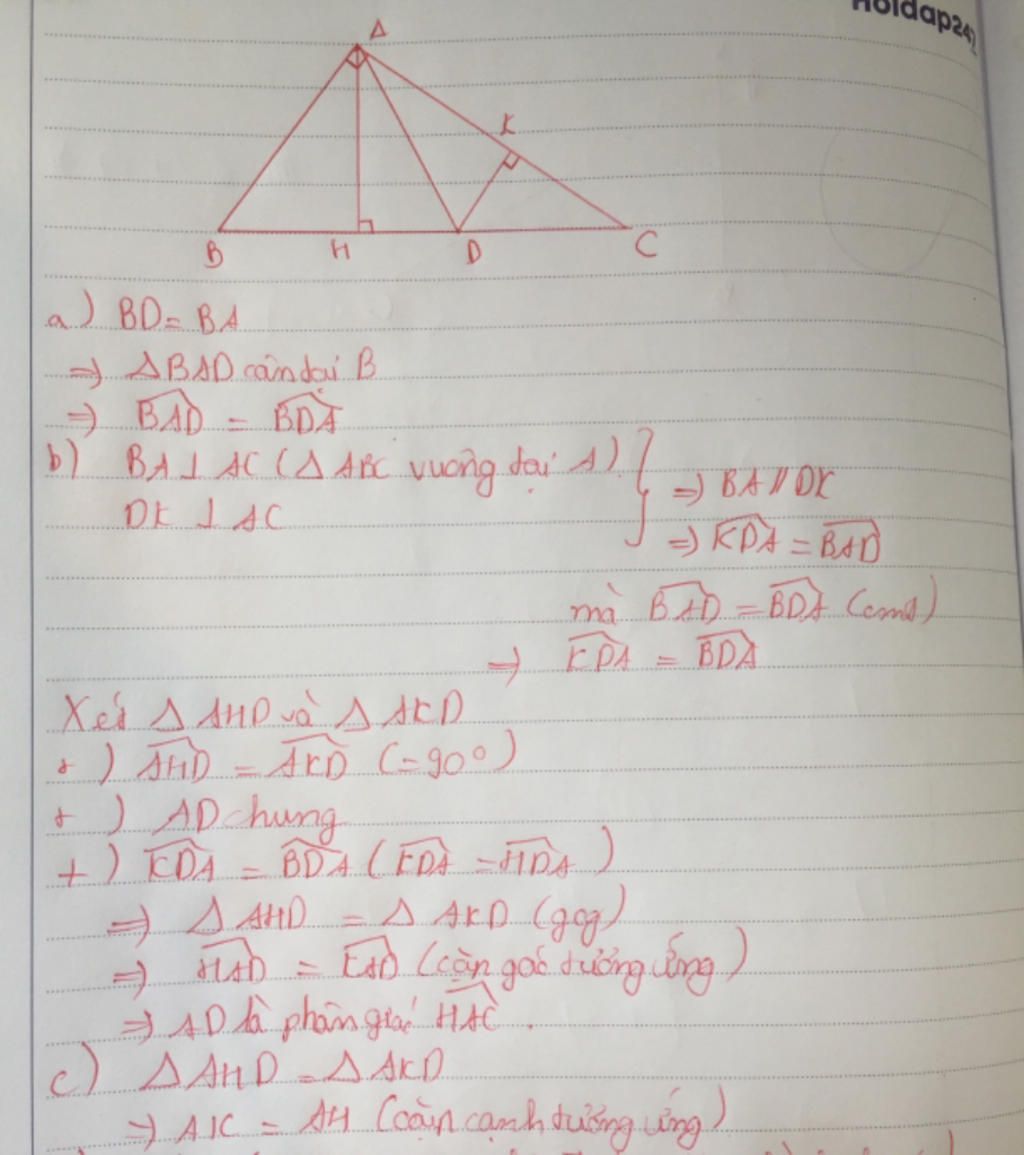 Hoidap247
A
K
B H D C
a) BD = BA
=> ΔBAD cân tại B
=> BAD = BDA
b) BA ⊥ AC (Δ ABC vuông tại A)
DK ⊥ AC
=> BA // DK
=> KDA = BAD
mà BAD = BDA (cmt)
=> KDA = BDA
Xét Δ AHD và Δ AKD
+) AHD = AKD (= 90°)
+) AD chung
+) KDA = BDA (KDA = HDA)
=> Δ AHD = Δ AKD (gcg)
=> HAD = KAD (cặp góc tương ứng)
=> AD là phân giác HAC.
c) Δ AHD = Δ AKD
=> AK = AH (cặp cạnh tương ứng)